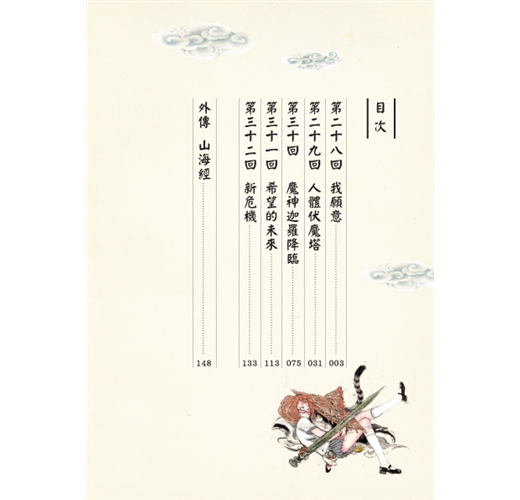 目次
第二十八回 我願意 003
第二十九回 人體伏魔塔 031
第三十回 魔神迦羅降臨 075
第三十一回 希望的未來 113
第三十二回 新危機 133
外傳 山海經 148